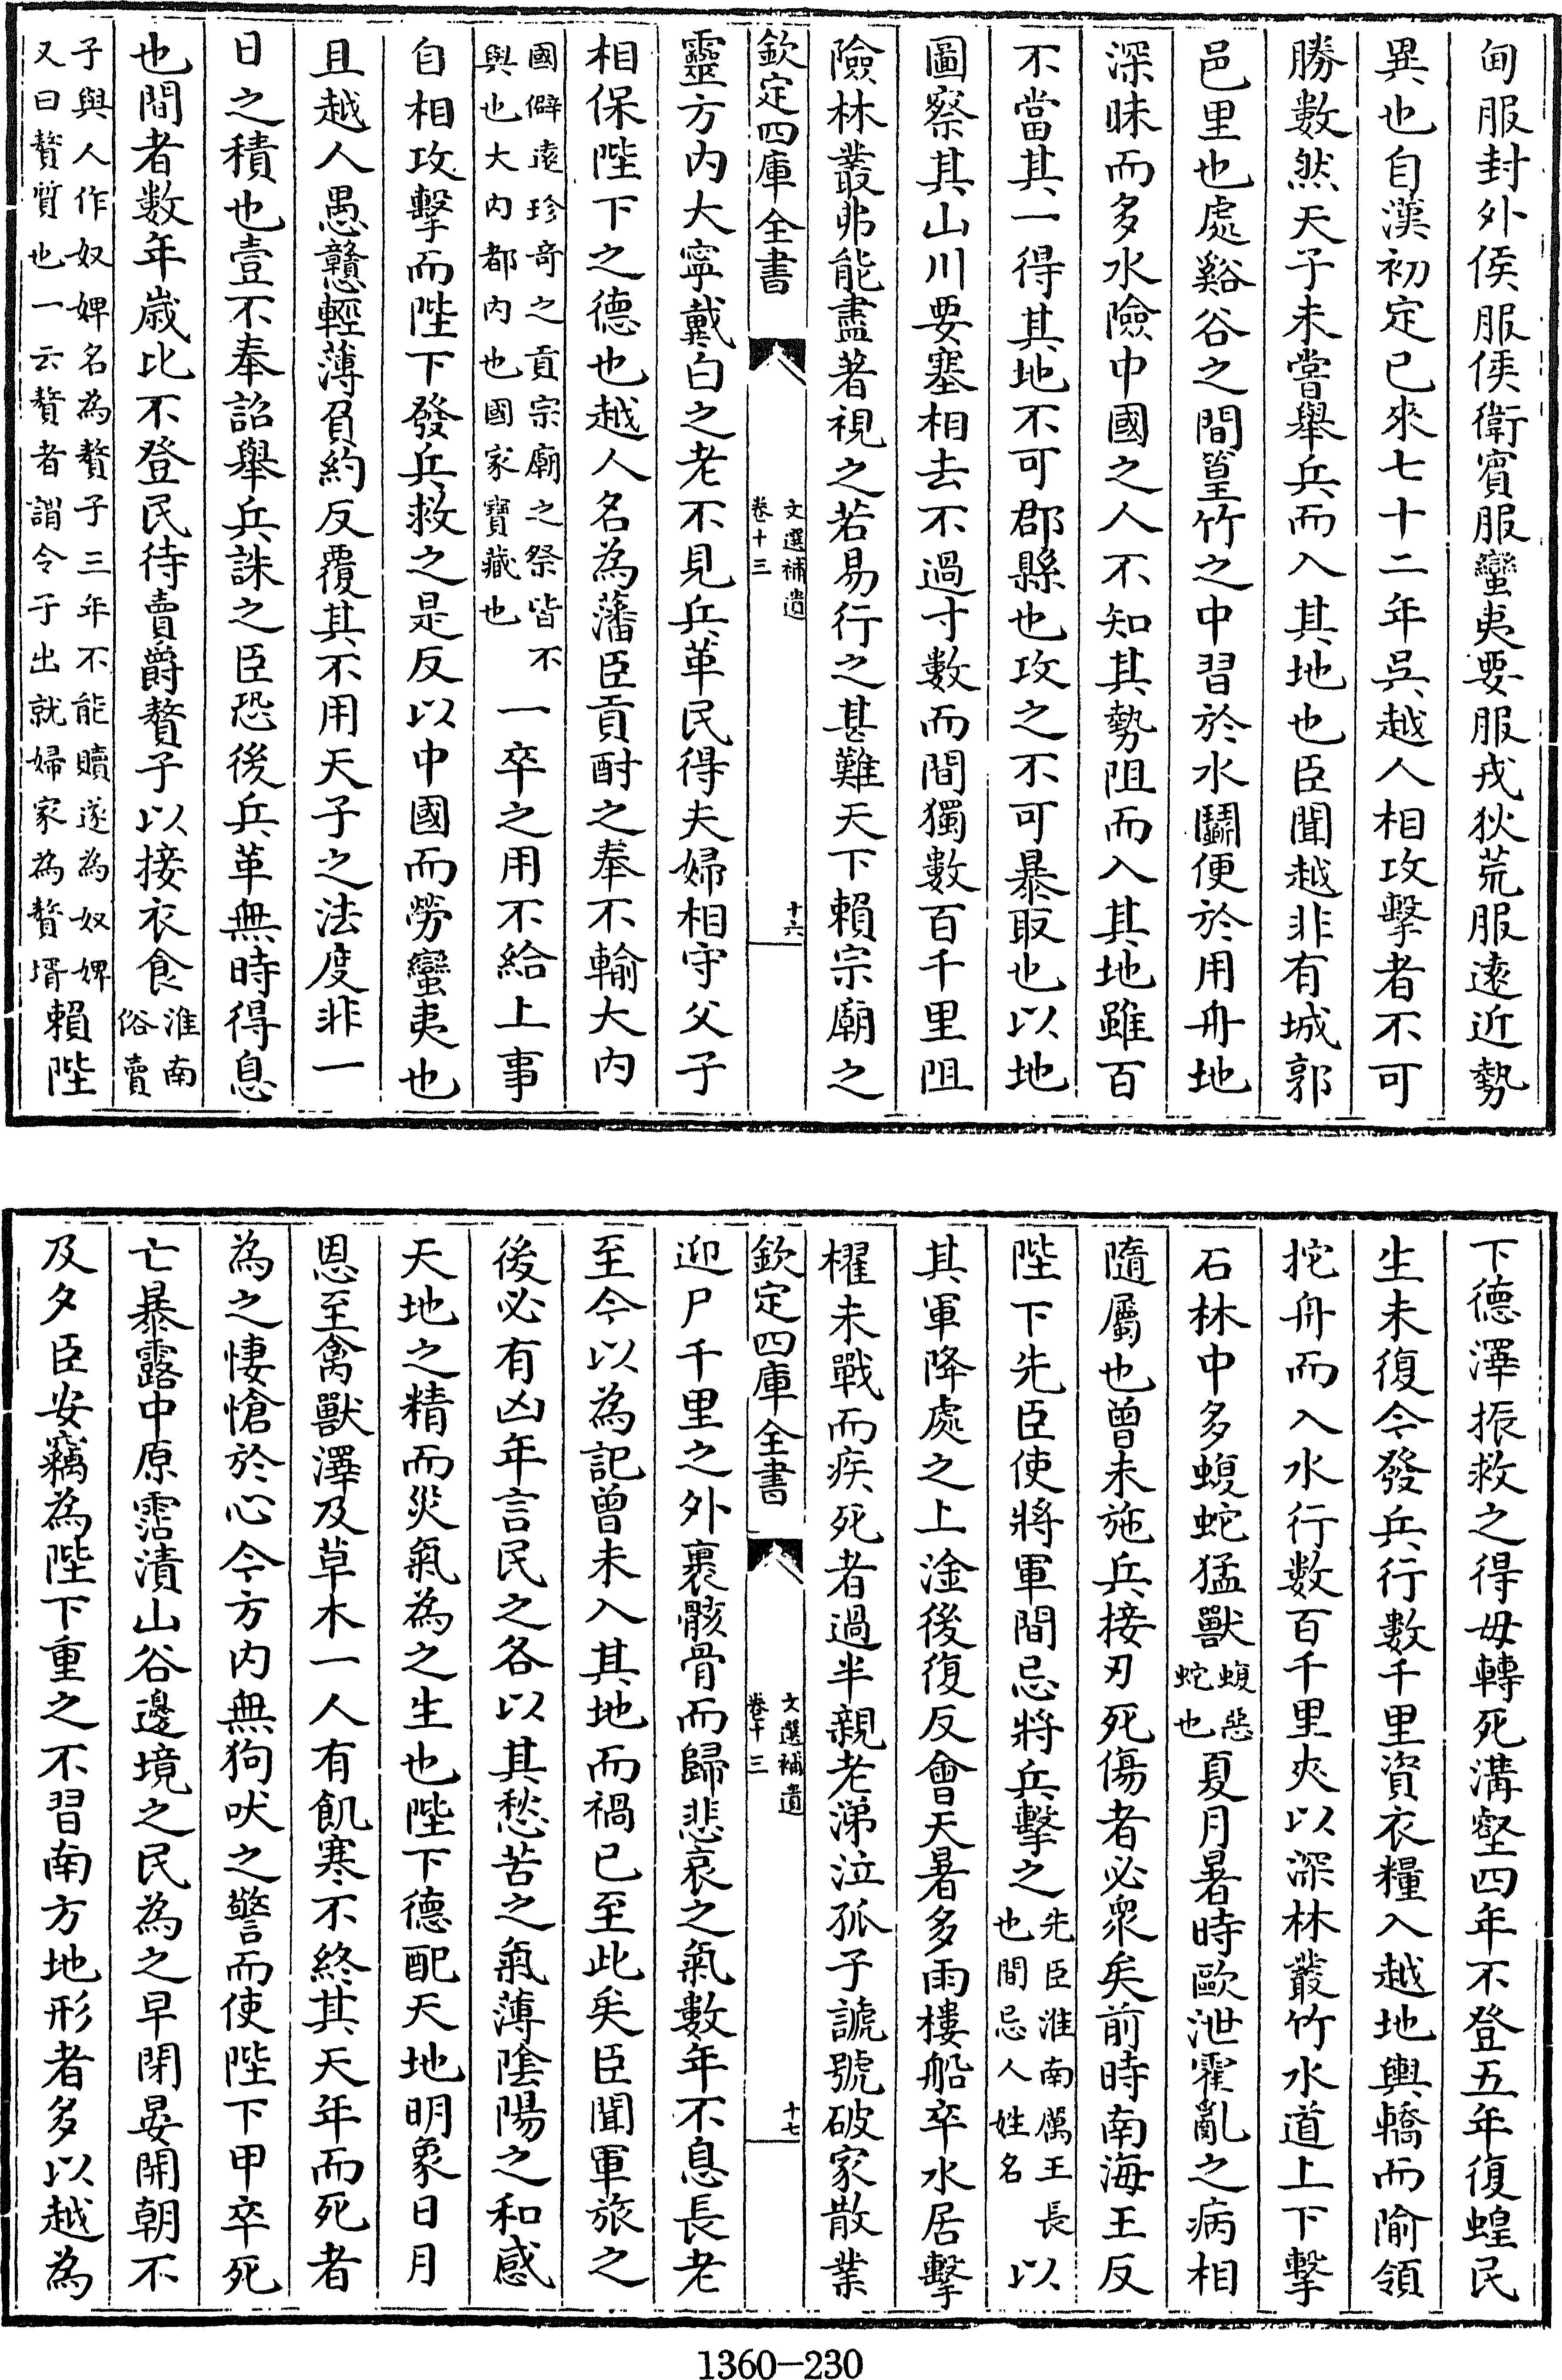 甸服封外侯服侯衛賓服蠻夷要服戎狄荒服逺近勢
異也自漢初定已來七十二年吳越人相攻擊者不可
勝數然天子未嘗舉兵而入其地也臣聞越非有城郭
邑里也處谿谷之間篁竹之中習於水鬭便於用舟地
深昧而多水險中國之人不知其勢阻而入其地雖百
不當其一得其地不可郡縣也攻之不可暴取也以地
圖察其山川要塞相去不過寸數而間獨數百千里阻
險林叢弗能盡著視之若易行之甚難天下賴宗廟之
欽定四庫全書
文選補遺
卷十三
十六
靈方内大寧戴白之老不見兵革民得夫婦相守父子
相保陛下之德也越人名為藩臣貢酎之奉不輸大内
國僻逺珍奇之貢宗廟之祭皆不
與也大内都内也國家寶藏也
一卒之用不給上事
自相攻擊而陛下發兵救之是反以中國而勞蠻夷也
且越人愚戇輕薄負約反覆其不用天子之法度非一
日之積也壹不奉詔舉兵誅之臣恐後兵革無時得息
也間者數年歲比不登民待賣爵贅子以接衣食
淮南
俗賣
子與人作奴婢名為贅子三年不能贖遂為奴婢
又曰贅質也一云贅者謂令子出就婦家為贅壻
賴陛
下德澤振救之得毋轉死溝壑四年不登五年復蝗民
生未復今發兵行數千里資衣糧入越地輿轎而隃領
拕舟而入水行數百千里夾以深林叢竹水道上下擊
石林中多蝮蛇猛獸
蝮惡
蛇也
夏月暑時歐泄霍亂之病相
隨屬也曾未施兵接刃死傷者必衆矣前時南海王反
陛下先臣使將軍間忌將兵擊之
先臣淮南厲王長
也間忌人姓名
以
其軍降處之上淦後復反會天暑多雨樓船卒水居擊
櫂未戰而疾死者過半親老涕泣孤子謕號破家散業
欽定四庫全書
文選補遺
卷十三
十七
迎尸千里之外裹骸骨而歸悲哀之氣數年不息長老
至今以為記曾未入其地而禍已至此矣臣聞軍旅之
後必有凶年言民之各以其愁苦之氣薄陰陽之和感
天地之精而災氣為之生也陛下德配天地明象日月
恩至禽獸澤及草木一人有飢寒不終其天年而死者
為之悽愴於心今方内無狗吠之警而使陛下甲卒死
亡暴露中原霑漬山谷邊境之民為之早閉晏開朝不
及夕臣安竊為陛下重之不習南方地形者多以越為
1360-230